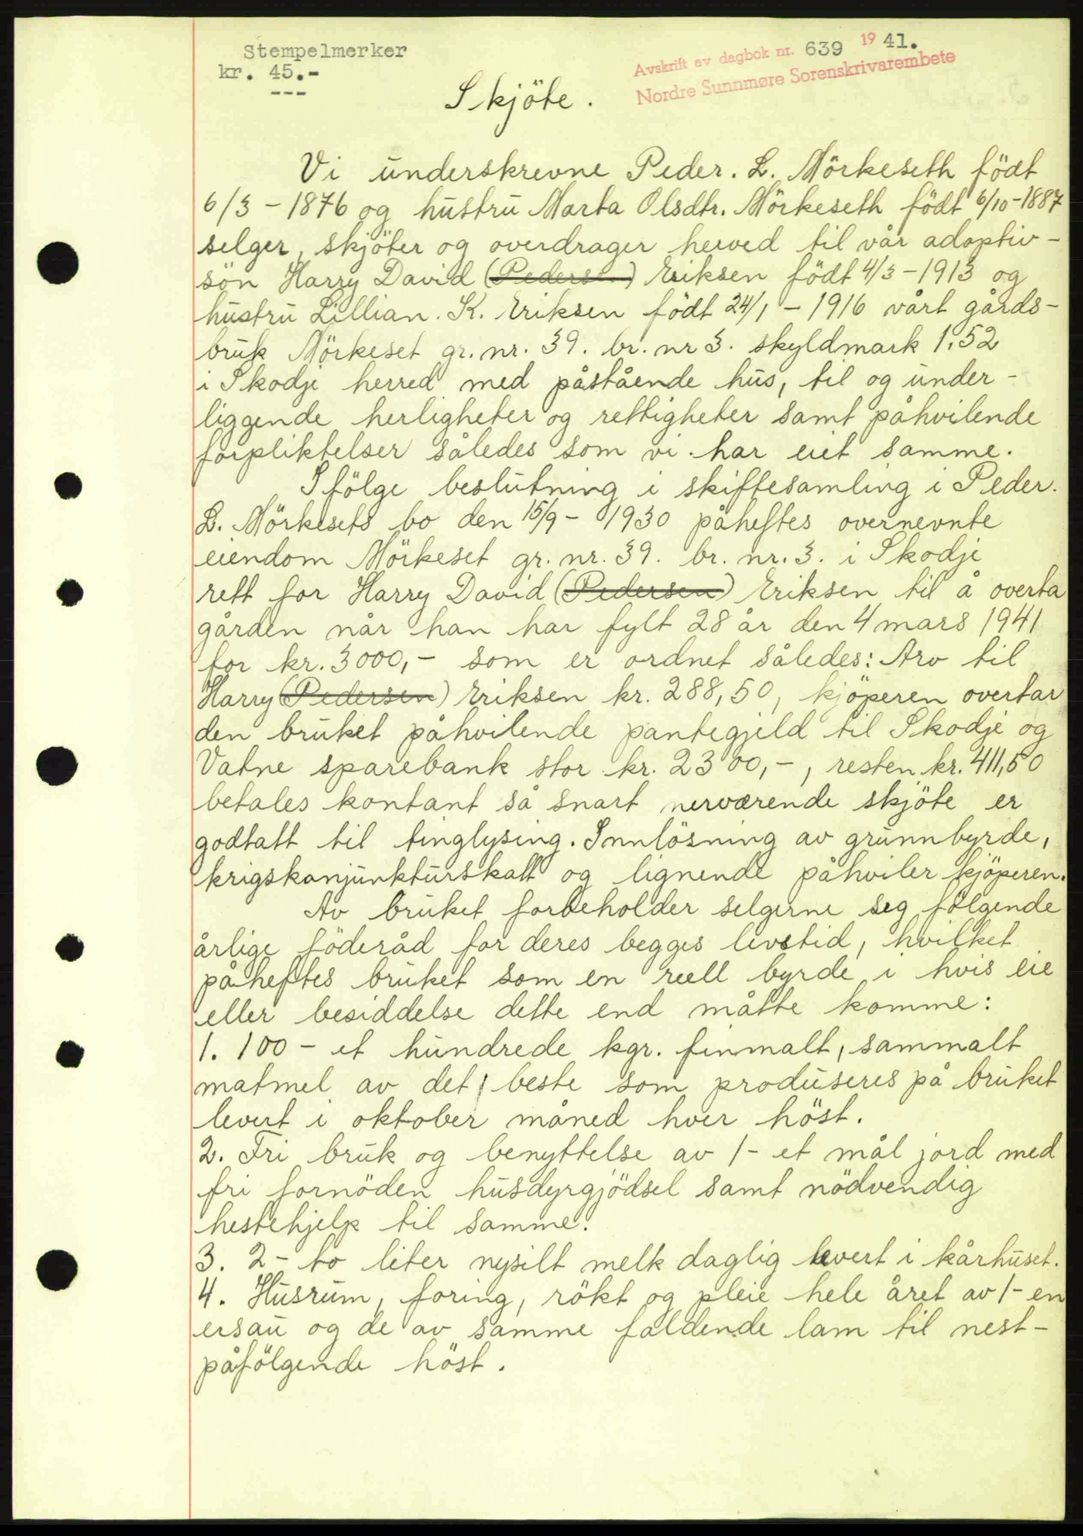 Stempelmerker
kr. 45.-
---
Avskrift av dagbok nr. 639 1941.
Nordre Sunnmøre Sorenskrivarembete
Skjöte.
Vi underskrevne Peder. L. Mörkeseth födt
6/3 - 1876 og hustru Marta Olsdtr. Mörkeseth födt 6/10-1887
selger, skjöter og overdrager herved til vår adoptiv-
sön Harry David (Pedersen) Eriksen födt 4/3-1913 og
hustru Lillian. K. Eriksen födt 24/1 - 1916 vårt gårds-
bruk Mörkeset gr. nr. 39. br. nr 3. skyldmark 1.52
i Skodje herred med påstående hus, til og under-
liggende herligheter og rettigheter samt påhvilende
forpliktelser således som vi har eiet samme.
Ifölge beslutning i skiftesamling i Peder.
L. Mörkesets bo den 15/9 - 1930 påheftes overnevnte
eiendom Mörkeset gr. nr. 39. br. nr. 3. i Skodje
rett for Harry David (Pedersen) Eriksen til å overta
gården når han har fylt 28 år den 4 mars 1941
for kr. 3000,- som er ordnet således: Arv til
Harry (Pedersen) Eriksen kr. 288,50, kjöperen overtar
den bruket påhvilende pantegjeld til Skodje og
Vatne sparebank stor kr. 2300,-, resten kr. 411,50
betales kontant så snart nerværende skjöte er
godtatt til tinglysing. Innlösning av grunnbyrde,
krigskonjunkturskatt og lignende påhviler kjöperen.
Av bruket forbeholder selgerne seg fölgende
årlige föderåd for deres begges livstid, hvilket
påheftes bruket som en reell byrde i hvis eie
eller besiddelse dette end måtte komme:
1. 100 - et hundrede kgr. finmalt, sammalt
matmel av det beste som produseres på bruket
levert i oktober måned hver höst.
2. Fri bruk og benyttelse av 1- et mål jord med
fri fornöden husdyrgjödsel samt nödvendig
hestehjelp til samme.
3. 2 - to liter nysilt melk daglig levert i kårhuset.
4. Husrum, foring, rökt og pleie hele året av 1- en
ersau og de av samme faldende lam til nest-
påfölgende höst.